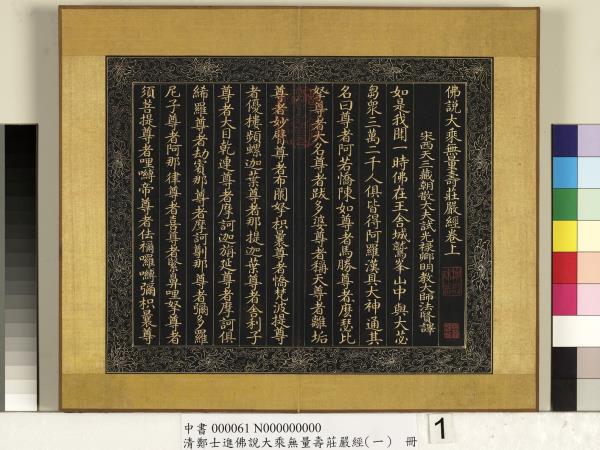 佛說大乘無量壽莊嚴經卷上
宋西天三藏朝散大夫試光祿卿明教大師法賢譯
如是我聞一時佛在王舍城鷲峯山中與大苾
芻眾三萬二千人俱皆得阿羅漢具大神通其
名曰尊者阿若憍陳如尊者馬勝尊者麼瑟比
拏尊者大名尊者跋多婆尊者稱天尊者離垢
尊者妙臂尊者布闌拏枳曩尊者憍梵波提尊
者優樓頻螺迦葉尊者那提迦葉尊者舍利子
尊者大目乾連尊者摩訶迦旃延尊者摩訶俱
絺羅尊者劫賓那尊者摩訶劑那尊者彌多羅
尼子尊者阿那律尊者喜尊者緊鼻哩拏尊者
須菩提尊者哩嚩帝尊者佉禰囉嚩彌枳曩尊
中書 000061 N000000000
清鄭士進佛說大乘無量壽莊嚴經(一) 冊
1